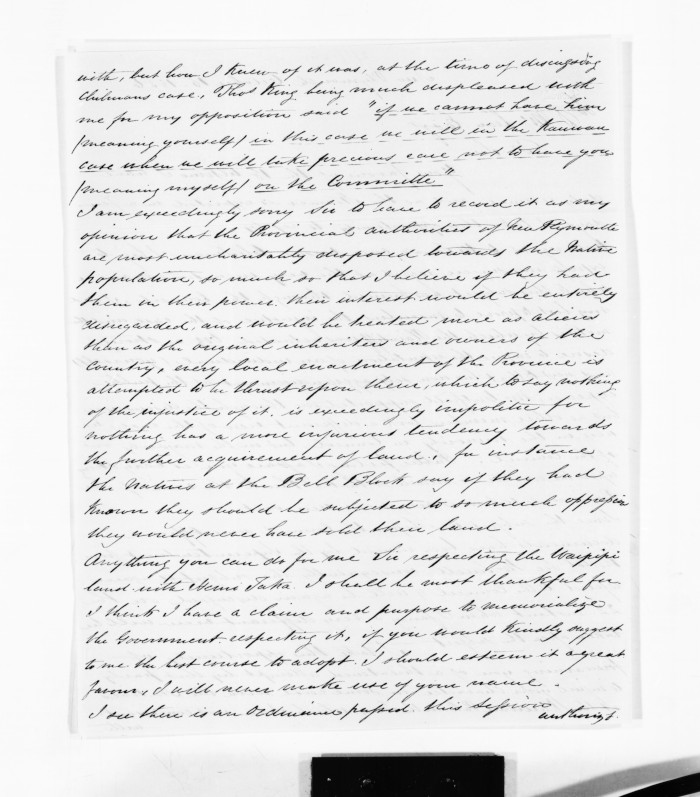 with, but how I knew of it was, at the time of discussing
Chilmans case, Thos King being much displeased with
me for my opposition said "if we cannot have him
(meaning yourself) in this case we will in the
case when we will take precious care not to have you
(meaning myself) on the Committe"
I am exceedingly sorry Sir to have to record it as my
opinion that the Provincial authorities of New Plymouth
are most uncharitably disposed towards the Native
population, so much so that I believe if they had
them in their power their interest would be entirely
disregarded, and would be treated more as aliens
than as the original inheriters and owners of the
Country, every local enactment of the Province is
attempted to be thrust upon them, which to say nothing
of the injustice of it, is exceedingly impolitic for
nothing has a more injurious tendency towards
the further acquirement of land, for instance
the Natives at the Bell Block say if they had
known they should be subjected to so much oppression
they would never have sold their land.
Anything you can do for me Sir respecting the Waipipi
land with Hemi Taka I shall be most thankful for
I think I have a claim and purpose to memorialize
the Government respecting it, if you would kindly suggest
to me the best course to adopt I should esteem it a great
favour, I will never make use of your name.
I see there is an Ordinance passed this session